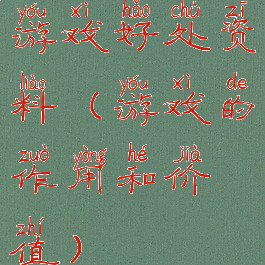 yóu xì hǎo chù zī
游戏好处资
liào yóu xì de
料（游戏的
zuò yòng hé jià
作用和价
zhí
值）